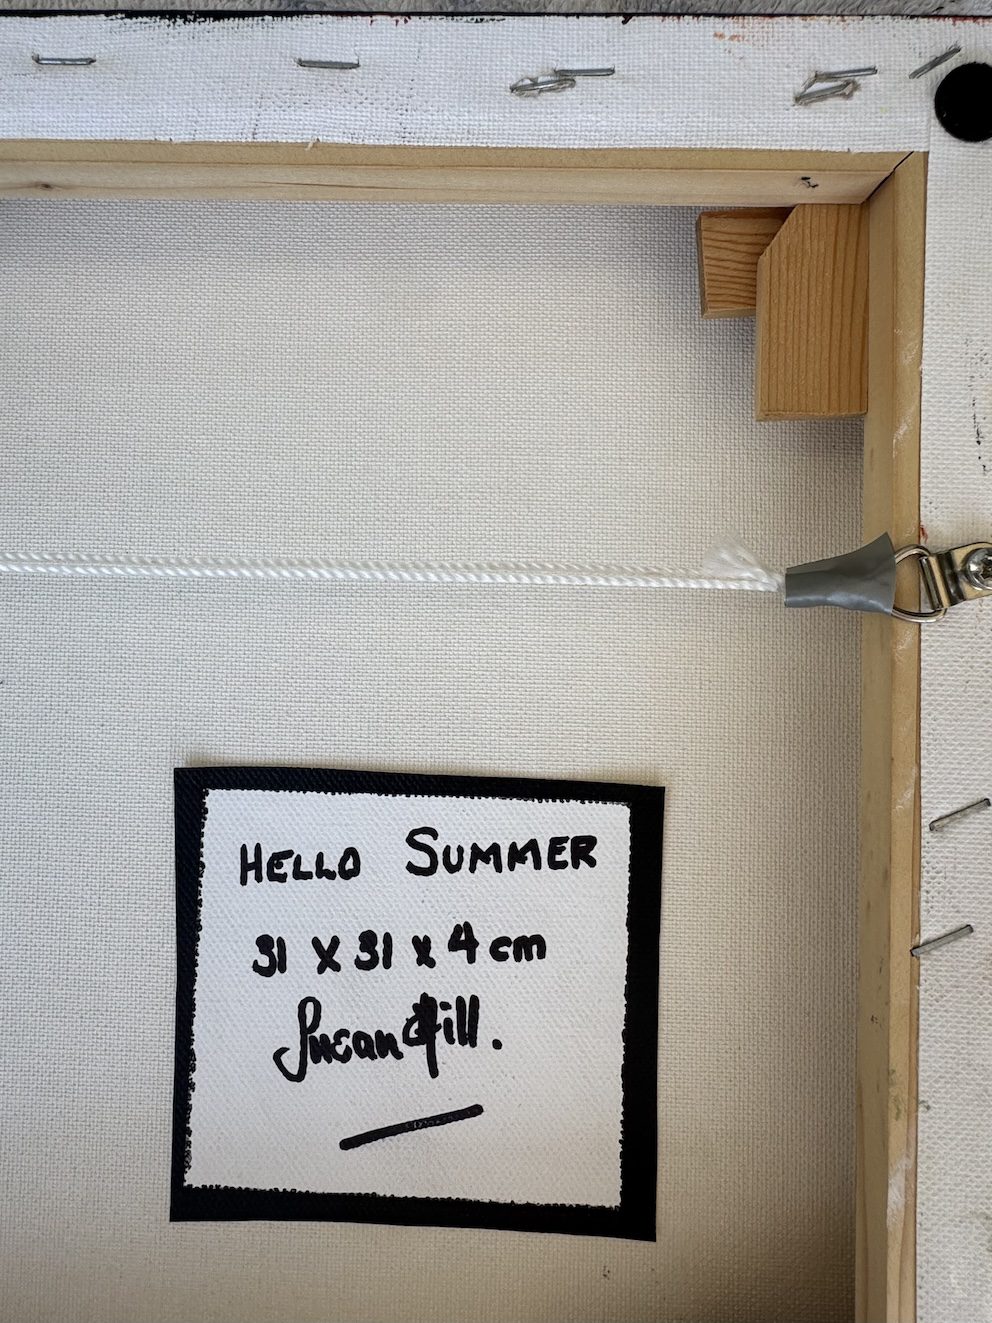 HELLO SUMMER
31 x 31 x 4 cm
Susan Gill.